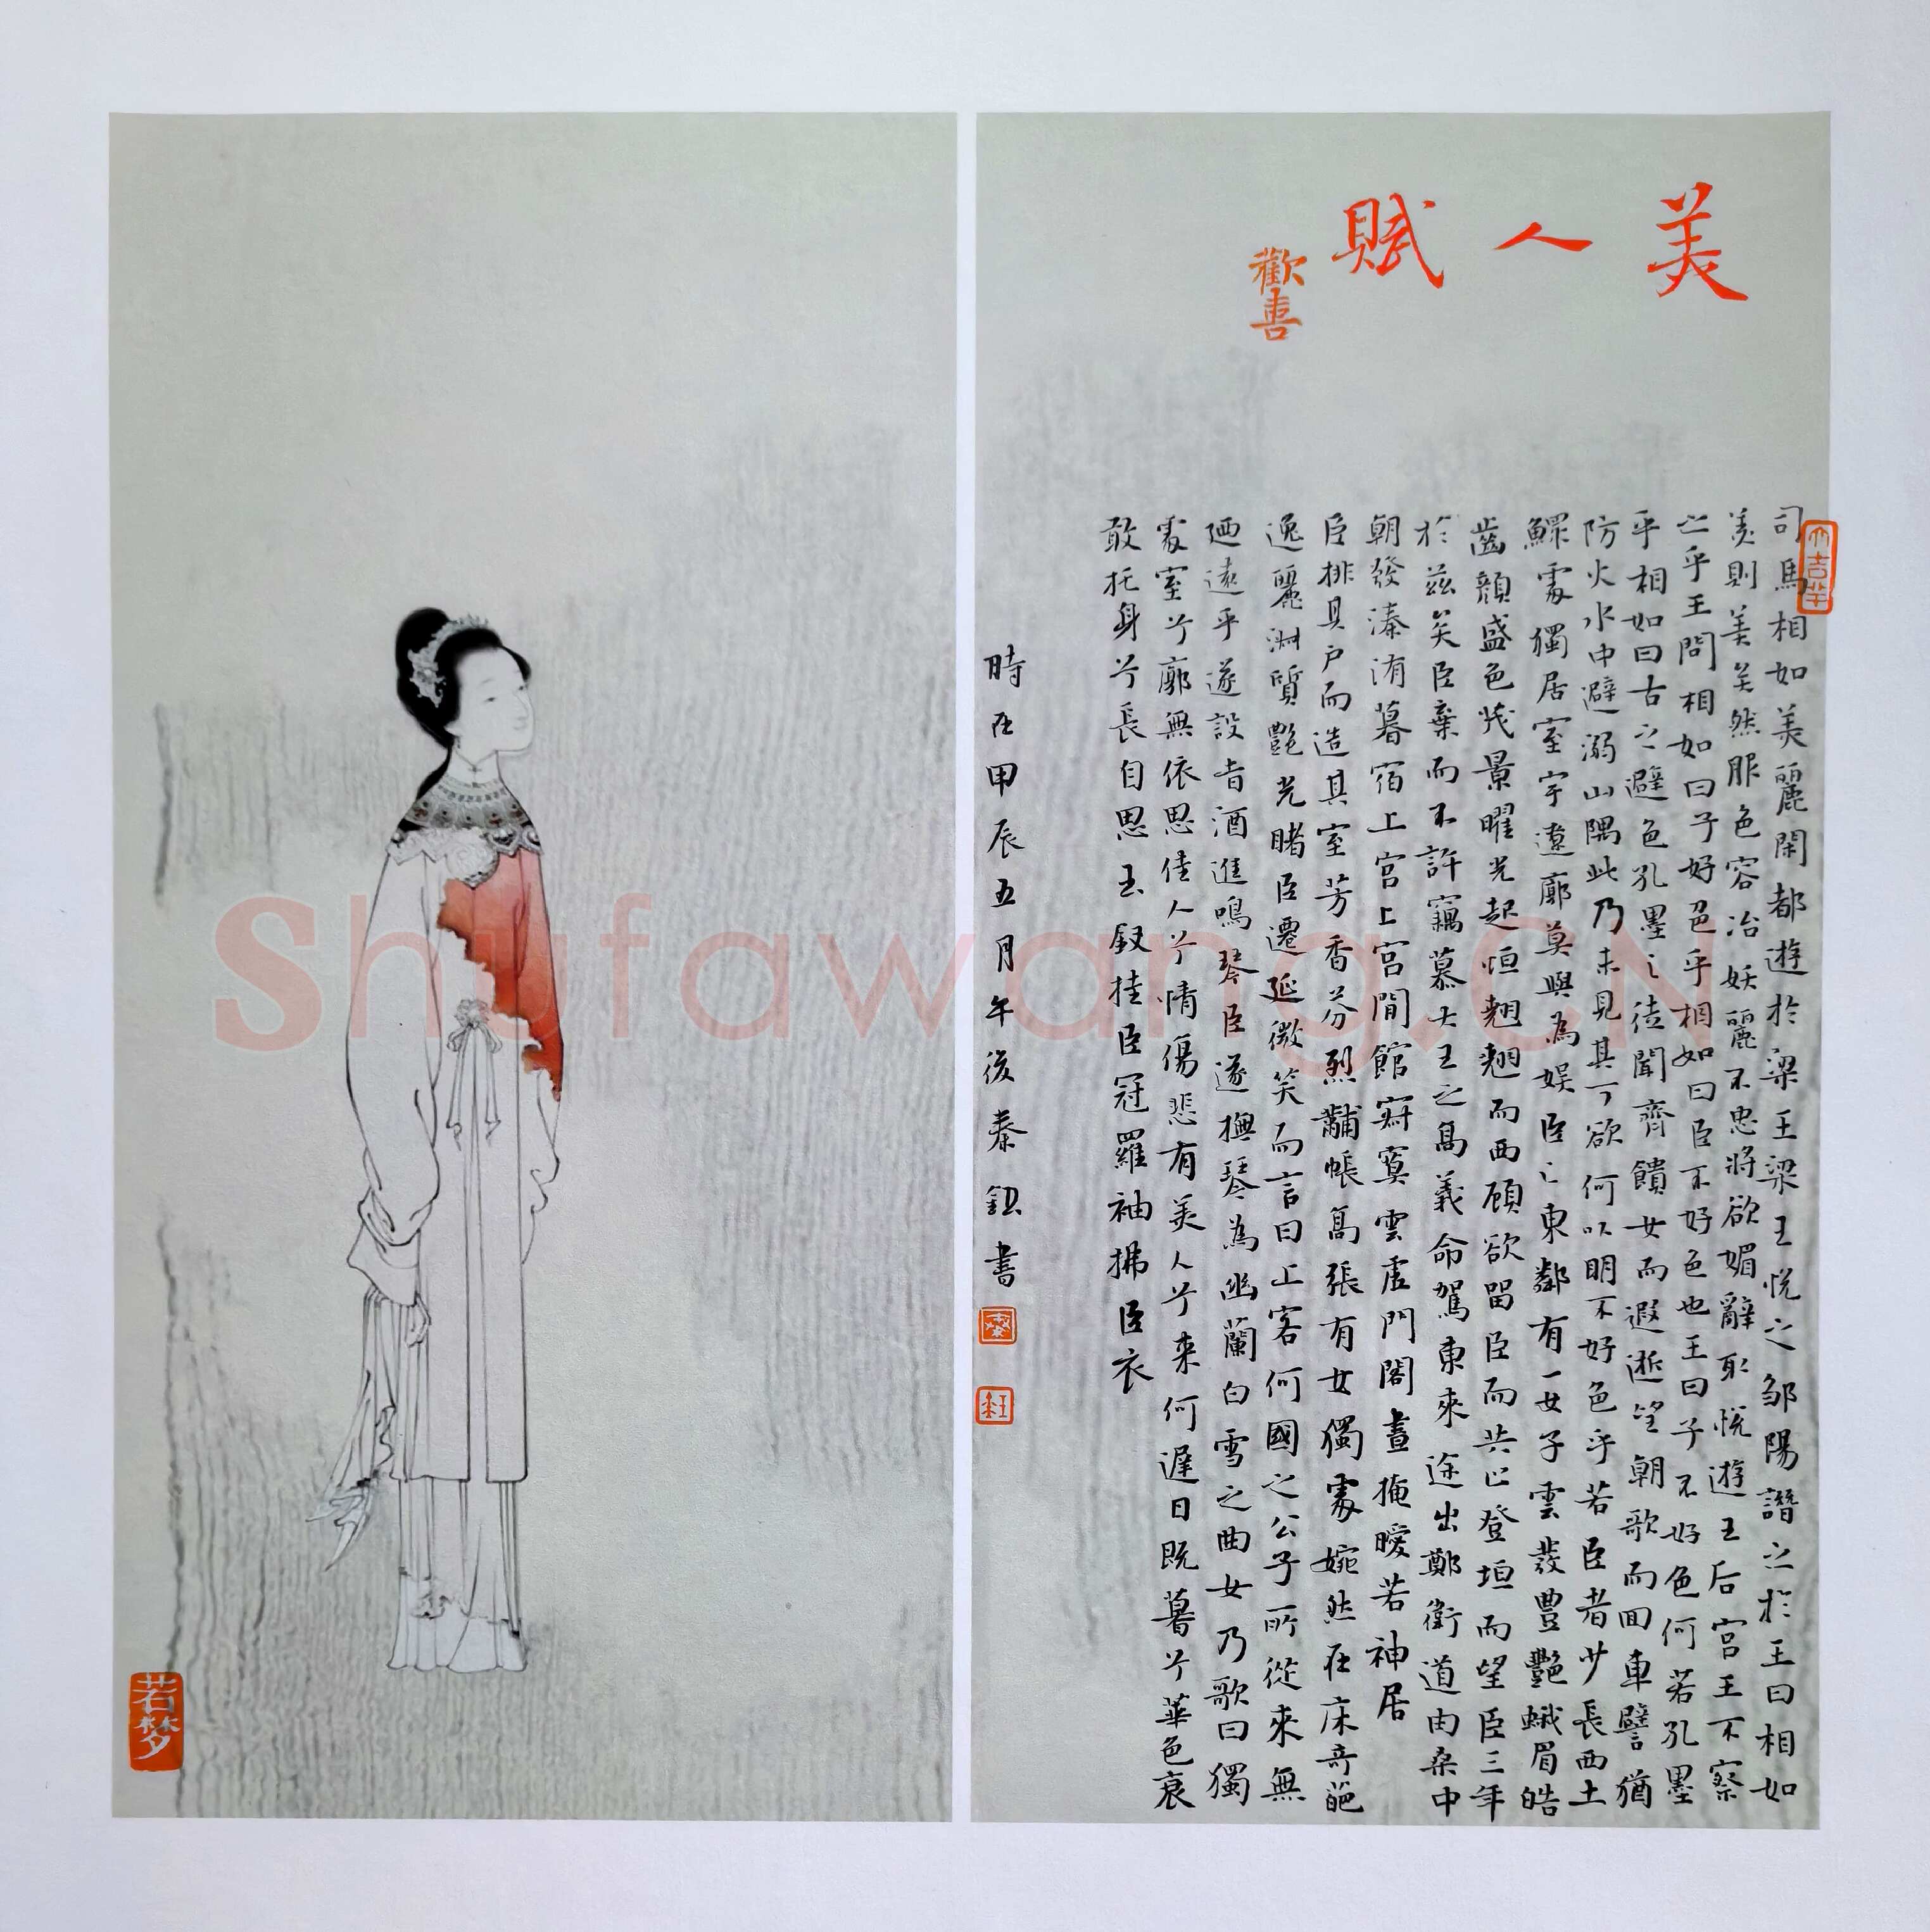 美人賦
歡喜
大吉羊
司馬相如美麗閑都遊於梁王梁王悅之鄒陽譖之於王曰相如
美則美矣然服色容冶妖麗不忠將欲媚辭取悅遊王后宮王不察
之乎王問相如曰子好色乎相如曰臣不好色也王曰子不好色何若孔墨
乎相如曰古之避色孔墨之徒聞齊饋女而遐逝望朝歌而回車譬猶
防火水中避溺山隅此乃未見其可欲何以明不好色乎若臣者少長西土
鰥處獨居室宇遼廓莫與為娛臣之東鄰有一女子雲發豐艷蛾眉皓
齒顏盛色茂景曜光起恒翹翹而西顧欲留臣而共止登垣而望臣三年
於茲矣臣棄而不許竊慕大王之高義命駕東來途出鄭衛道由桑中
朝發溱洧暮宿上宮上宮閒館寂寞雲虛門閣晝掩曖若神居
臣排其戶而造其室芳香芬烈黼帳高張有女獨處婉然在床奇葩
逸麗淑質艷光睹臣遷延微笑而言曰上客何國之公子所從來無
迺遠乎遂設旨酒進鳴琴臣遂撫琴為幽蘭白雪之曲女乃歌曰獨
處室兮廓無依思佳人兮情傷悲有美人兮來何遲日既暮兮華色衰
敢托身兮長自思玉釵挂臣冠羅袖拂臣衣
時在甲辰五月午後秦鈺書
若梦
Shufawang.CN